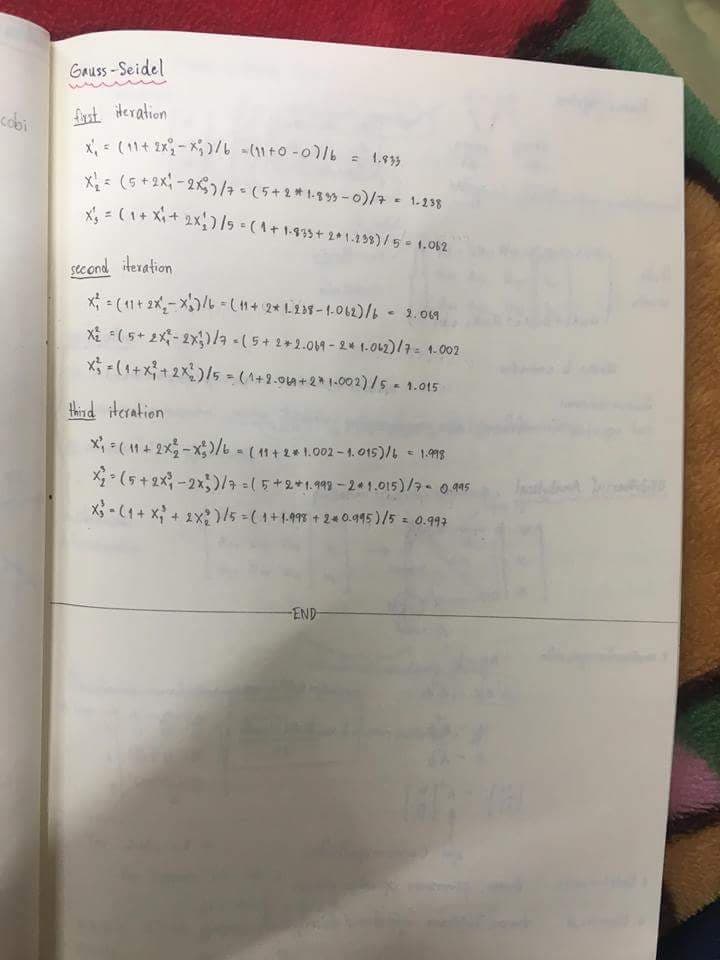 Gauss-Seidel
cobi
first iteration
x₁¹ = (11 + 2x₂⁰ - x₃⁰)/6 = (11+0-0)/6 = 1.833
x₂¹ = (5 + 2x₁¹ - 2x₃⁰)/7 = (5 + 2*1.833 - 0)/7 = 1.238
x₃¹ = (1 + x₁¹ + 2x₂¹)/5 = (1 + 1.833 + 2*1.238)/5 = 1.062
second iteration
x₁² = (11 + 2x₂¹ - x₃¹)/6 = (11 + 2*1.238 - 1.062)/6 = 2.069
x₂² = (5 + 2x₁² - 2x₃¹)/7 = (5 + 2*2.069 - 2*1.062)/7 = 1.002
x₃² = (1 + x₁² + 2x₂²)/5 = (1 + 2.069 + 2*1.002)/5 = 1.015
third iteration
x₁³ = (11 + 2x₂² - x₃²)/6 = (11 + 2*1.002 - 1.015)/6 = 1.998
x₂³ = (5 + 2x₁³ - 2x₃²)/7 = (5 + 2*1.998 - 2*1.015)/7 = 0.995
x₃³ = (1 + x₁³ + 2x₂³)/5 = (1 + 1.998 + 2*0.995)/5 = 0.997
END